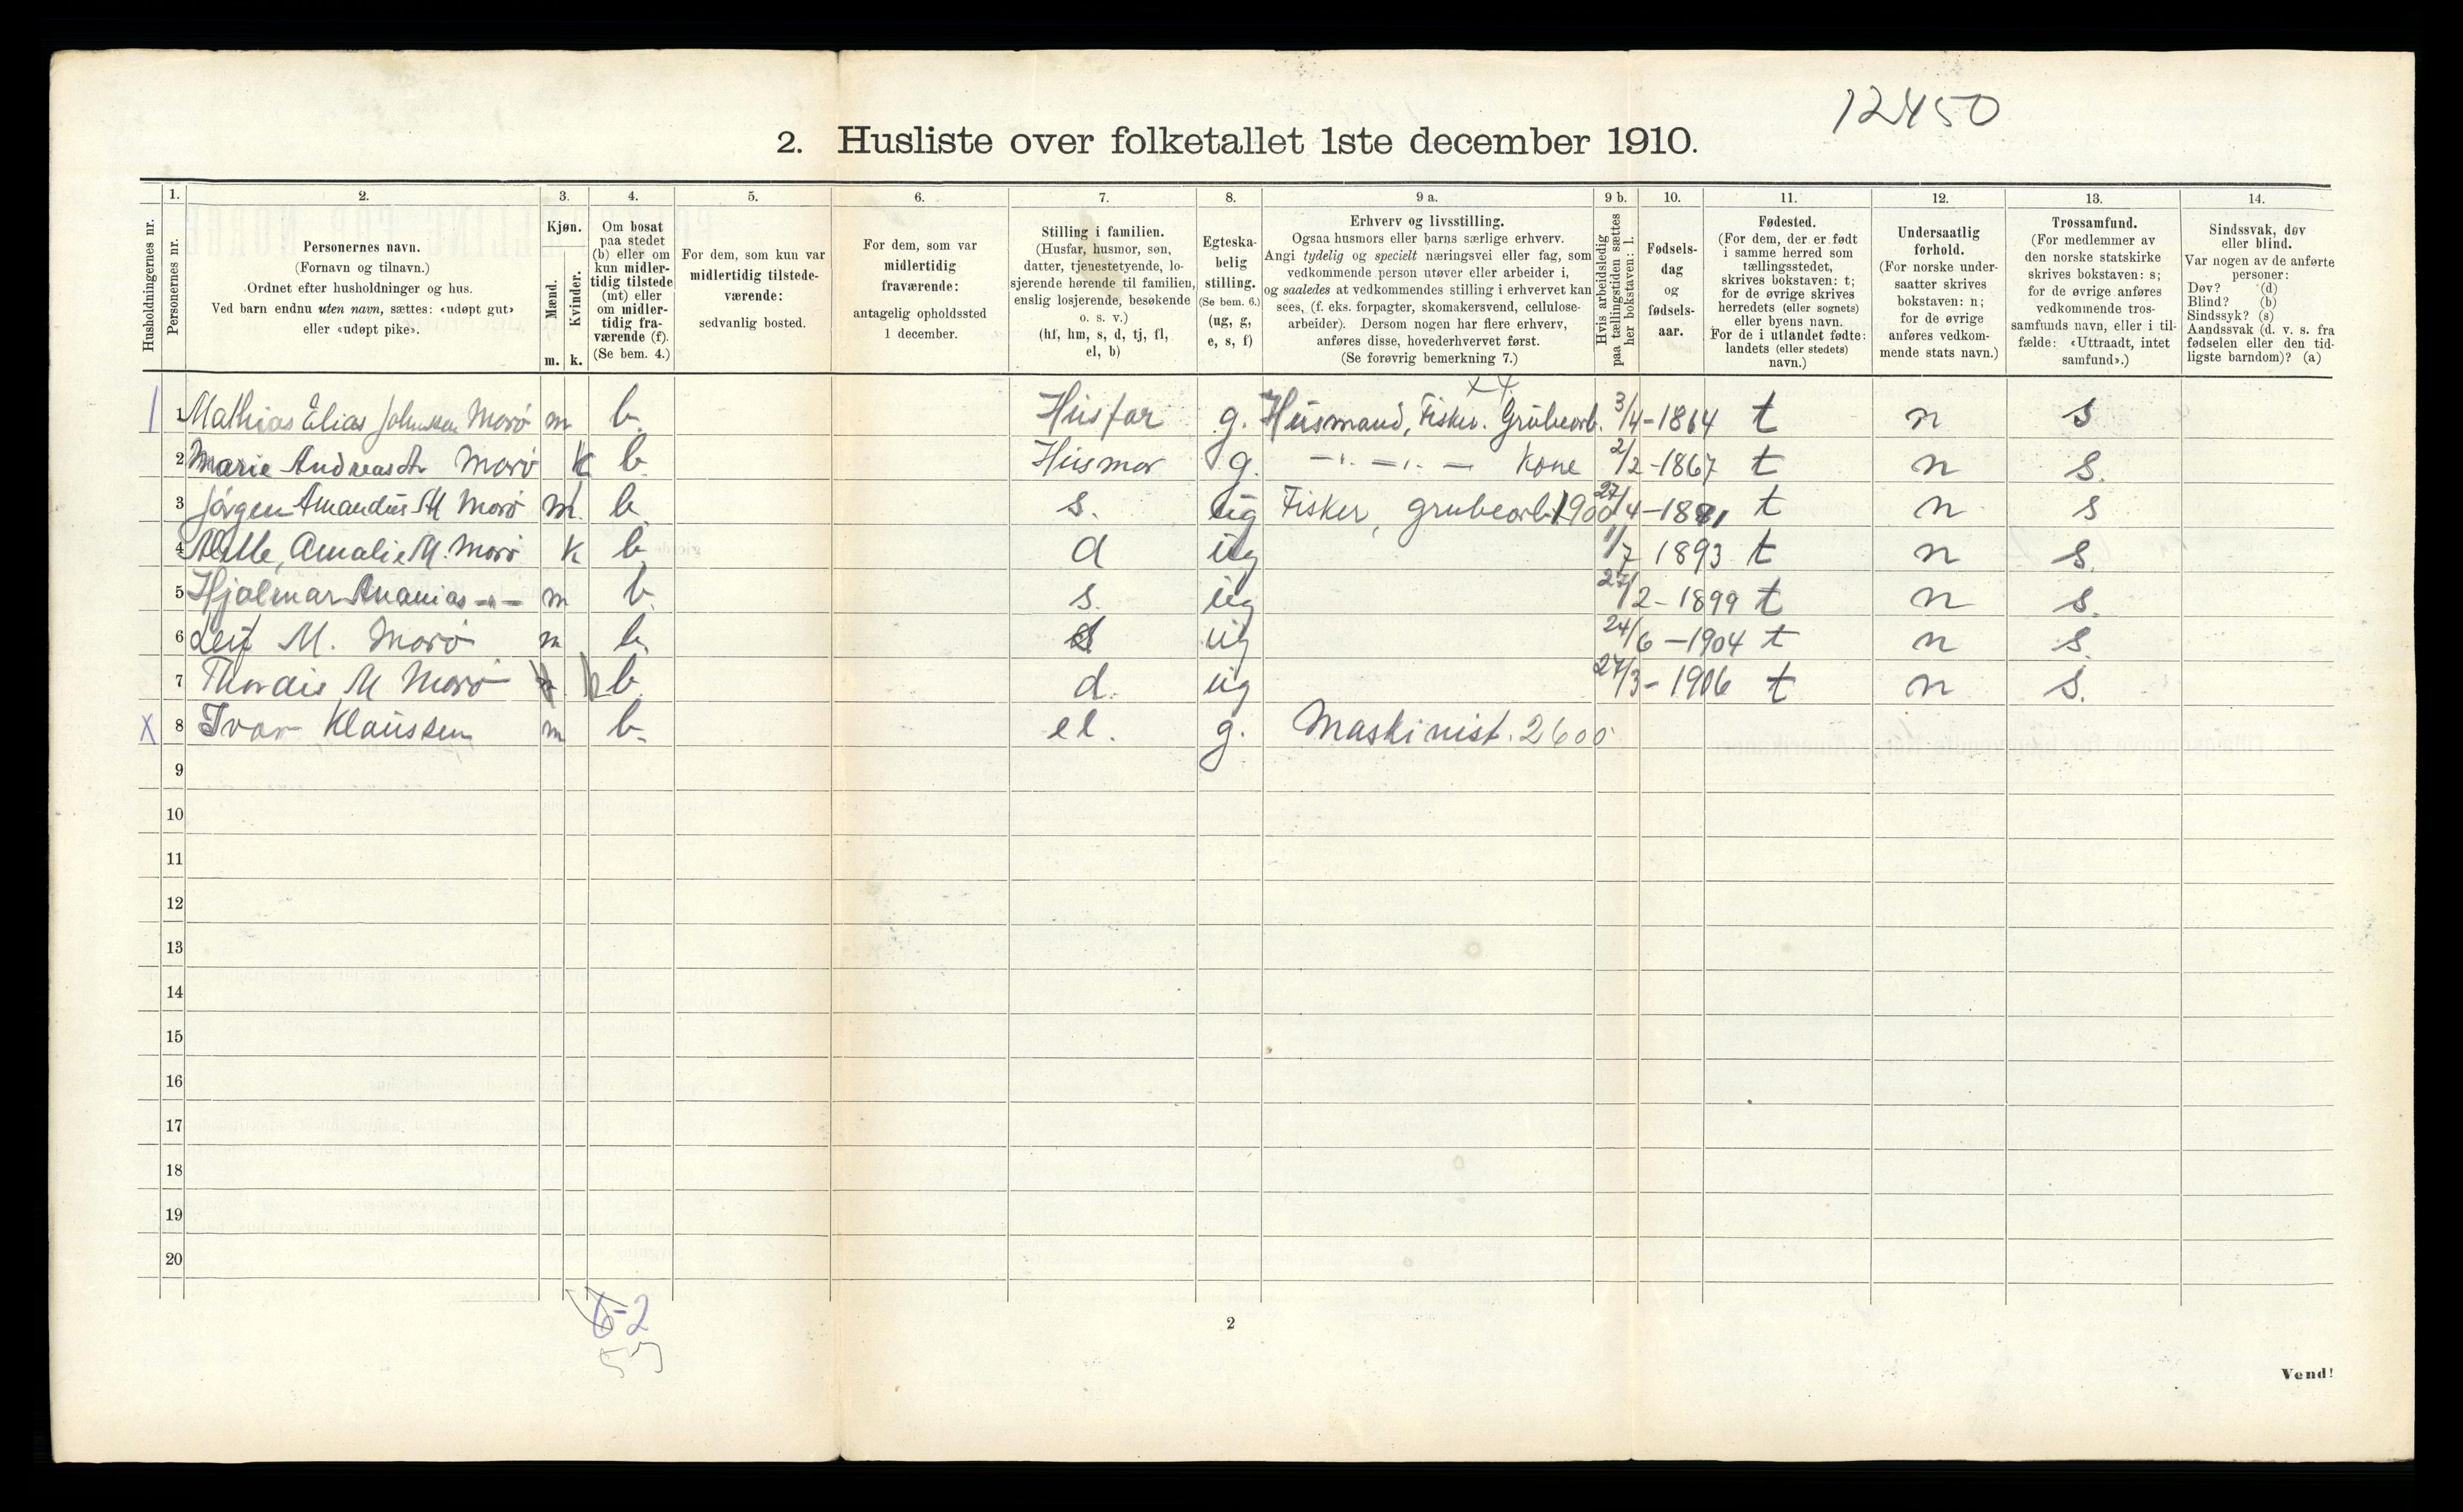 12450
2. Husliste over folketallet 1ste december 1910.
Husholdningernes nr.
1.
Personernes nr.
2.
Personernes navn.
(Fornavn og tilnavn.)
Ordnet efter husholdninger og hus.
Ved barn endnu uten navn, sættes: «udøpt gut»
eller «udøpt pike».
3.
Kjøn.
Mænd.
Kvinder.
m. k.
4.
Om bosat
paa stedet
(b) eller om
kun midler-
tidig tilstede
(mt) eller
om midler-
tidig fra-
værende (f).
(Se bem. 4.)
5.
For dem, som kun var
midlertidig tilstede-
værende:
sedvanlig bosted.
6.
For dem, som var
midlertidig
fraværende:
antagelig opholdssted
1 december.
7.
Stilling i familien.
(Husfar, husmor, søn,
datter, tjenestetyende, lo-
sjerende hørende til familien,
enslig losjerende, besøkende
o. s. v.)
(hf, hm, s, d, tj, fl,
el, b)
8.
Egteska-
belig
stilling.
(Se bem. 6.)
(ug, g,
e, s, f)
9 a.
Erhverv og livsstilling.
Ogsaa husmors eller barns særlige erhverv.
Angi tydelig og specielt næringsvei eller fag, som
vedkommende person utøver eller arbeider i,
og saaledes at vedkommendes stilling i erhvervet kan
sees, (f. eks. forpagter, skomakersvend, cellulose-
arbeider). Dersom nogen har flere erhverv,
anføres disse, hovederhvervet først.
(Se forøvrig bemerkning 7.)
9 b.
Hvis arbeidsledig
paa tællingstiden sættes
her bokstaven: l.
10.
Fødsels-
dag
og
fødsels-
aar.
11.
Fødested.
(For dem, der er født
i samme herred som
tællingsstedet,
skrives bokstaven: t;
for de øvrige skrives
herredets (eller sognets)
eller byens navn.
For de i utlandet fødte:
landets (eller stedets)
navn.)
12.
Undersaatlig
forhold.
(For norske under-
saatter skrives
bokstaven: n;
for de øvrige
anføres vedkom-
mende stats navn.)
13.
Trossamfund.
(For medlemmer av
den norske statskirke
skrives bokstaven: s;
for de øvrige anføres
vedkommende tros-
samfunds navn, eller i til-
fælde: «Uttraadt, intet
samfund».)
14.
Sindssvak, døv
eller blind.
Var nogen av de anførte
personer:
Døv? (d)
Blind? (b)
Sindssyk? (s)
Aandssvak (d. v. s. fra
fødselen eller den tid-
ligste barndom)? (a)
1 Mathias Elias Johnsen Morø m b. Husfar g. Husmand, Fisker. Grubearb. 3/4-1864 t n s
2 Marie Morø k b. Husmor g. — kone 2/2-1867 t n s.
3 Jørgen Amandus M Morø m. b. s. ug Fisker, grubearb. 1900 27/4-1881 t n s
4 Amalie M. Morø k b. d ug 1/7 1893 t n s.
5 Hjalmar Ananias -"- m b. s. ug 27/2-1899 t n s.
6 Leif M. Morø m b. s ug 24/6-1904 t n s.
7 Thordis M Morø k b. d. ug 27/3-1906 t n s.
X 8 Ivar Klaussen m b. el. g. Maskinist. 2600
9
10
11
12
13
14
15
16
17
18
19
20
6-2
2
Vend!